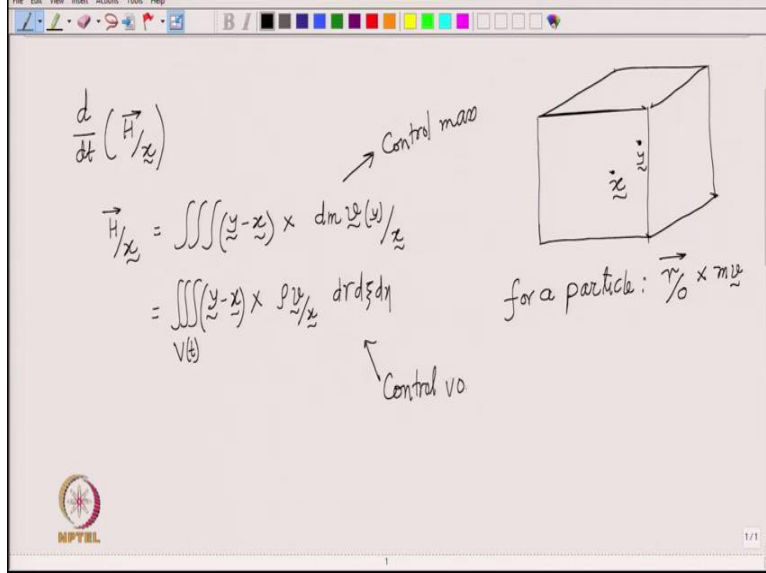 File Edit View Insert Actions Tools Help
B I
d/dt (H⃗/x̰)
Control mass
H⃗/x̰ = ∭(y̰-x̰) × dm v̰(y)/x̰
= ∭(y̰-x̰) × ρv̰/x̰ drdξdη
V(t)
Control vo
x̰ y̰
for a particle: r⃗/o × mv̰
NPTEL
1/1
1